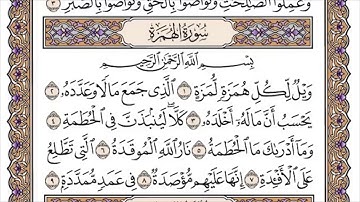 وَعَمِلُوا۟ ٱلصَّـٰلِحَـٰتِ وَتَوَاصَوْا۟ بِٱلْحَقِّ وَتَوَاصَوْا۟ بِٱلصَّبْرِ ٣
سُورَةُ الهُمَزَةِ
بِسْمِ ٱللَّهِ ٱلرَّحْمَـٰنِ ٱلرَّحِيمِ
وَيْلٌ لِّكُلِّ هُمَزَةٍ لُّمَزَةٍ ١ ٱلَّذِى جَمَعَ مَالًا وَعَدَّدَهُۥ ٢
يَحْسَبُ أَنَّ مَالَهُۥٓ أَخْلَدَهُۥ ٣ كَلَّا ۖ لَيُنۢبَذَنَّ فِى ٱلْحُطَمَةِ ٤
وَمَآ أَدْرَىٰكَ مَا ٱلْحُطَمَةُ ٥ نَارُ ٱللَّهِ ٱلْمُوقَدَةُ ٦ ٱلَّتِى تَطَّلِعُ
عَلَى ٱلْأَفْـِٔدَةِ ٧ إِنَّهَا عَلَيْهِم مُّؤْصَدَةٌ ٨ فِى عَمَدٍ مُّمَدَّدَةٍۭ ٩